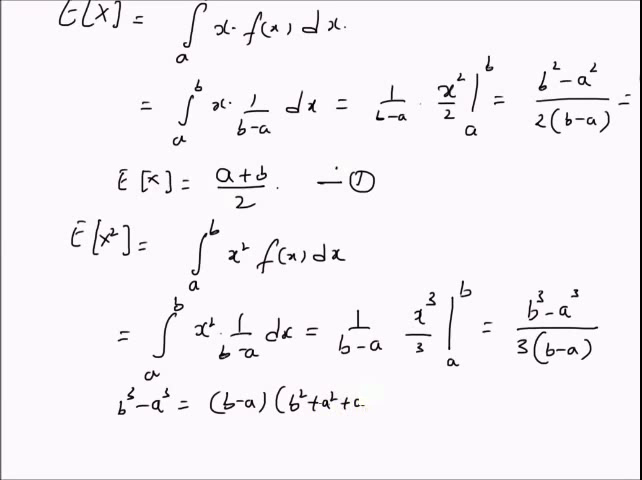 E[X] = ∫ₐ x. f(x) dx.
= ∫ₐᵇ x. 1/(b-a) dx = 1/(b-a) . x²/2 |ₐᵇ = (b²-a²)/(2(b-a)) =
E[X] = (a+b)/2. — ①
E[X²] = ∫ₐᵇ x² f(x) dx
= ∫ₐᵇ x². 1/(b-a) dx = 1/(b-a) x³/3 |ₐᵇ = (b³-a³)/(3(b-a))
b³-a³ = (b-a) (b²+a²+